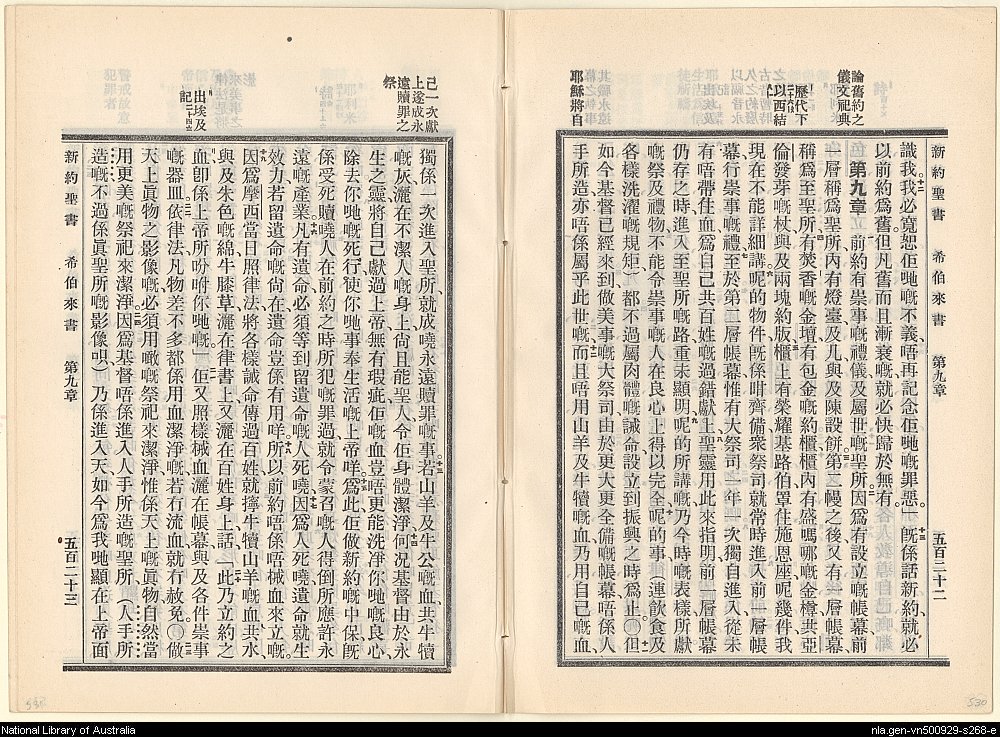 新約聖書 希伯來書 第九章 五百二十二
識我我必寬恕佢哋嘅不義唔再記念佢哋嘅罪惡」旣係話新約就必
以前約爲舊但凡舊而且漸衰嘅就必快歸於無有
第九章 前約有崇事嘅禮儀及屬世嘅聖所因爲有設立嘅帳幕前
一層稱爲聖所內有燈臺及几與及陳設餅第二幔之後又有一層帳幕
稱爲至聖所有焚香嘅金壇有包金嘅約櫃櫃內有盛嗎哪嘅金樽共亞
倫發芽嘅杖與及兩塊約版櫃上有榮耀基路伯罩住施恩座呢幾件我
現在不能詳細講呢的物件旣係咁齊備衆祭司就常時進入前一層帳
幕行崇事嘅禮至於第二層帳幕惟有大祭司一年一次獨自進入從未
有唔帶住血爲自己共百姓嘅過錯獻上聖靈用此來指明前一層帳幕
仍存之時進入至聖所嘅路重未顯明呢的所講嘅乃今時嘅表樣所獻
嘅祭及禮物不能令崇事嘅人在良心上得以完全呢的事（連飲食及
各樣洗濯嘅規矩）都不過屬肉體嘅誡命設立到振興之時爲止〇但
如今基督已經來到做美事嘅大祭司由於更大更全備嘅帳幕唔係人
手所造亦唔係屬乎此世嘅而且唔用山羊及牛犢嘅血乃用自己嘅血
論舊約之
儀文祀典
歷代下
以西結
耶穌將自
新約聖書 希伯來書 第九章 五百二十三
獨係一次進入聖所就成曉永遠贖罪嘅事若山羊及牛公嘅血共牛犢
嘅灰灑在不潔人嘅身上尙且能聖人令佢身體潔淨何況基督由於永
生之靈將自己獻過上帝無有瑕疵佢嘅血豈唔更能洗淨你哋嘅良心
除去你哋嘅死行使你哋事奉生活嘅上帝咩爲此佢做新約嘅中保旣
係受死贖曉人在前約之時所犯嘅罪過就令蒙召嘅人得倒所應許永
遠嘅產業凡有遺命必須等到留遺命嘅人死曉因爲人死曉遺命就生
效力若留遺命嘅尙在遺命豈係有用咩所以前約唔係唔械血來立嘅
因爲摩西當日照律法將各樣誡命傳過百姓就擰牛犢山羊嘅血共水
與及朱色嘅綿牛膝草灑在律書上又灑在百姓身上話「此乃立約之
血卽係上帝所吩咐你哋嘅」佢又照樣械血灑在帳幕與及各件崇事
嘅器皿依律法凡物差不多都係用血潔淨嘅若冇流血就冇赦免〇做
天上眞物之影像嘅必須用瞰嘅祭祀來潔淨惟係天上嘅眞物自然當
用更美嘅祭祀來潔淨因爲基督唔係進入人手所造嘅聖所（人手所
造嘅不過係眞聖所嘅影像唄）乃係進入天如今爲我哋顯在上帝面
己一次獻
上遂成永
遠贖罪之
祭
出埃及
記二十四
National Library of Australia
nla.gen-vn500929-s268-e